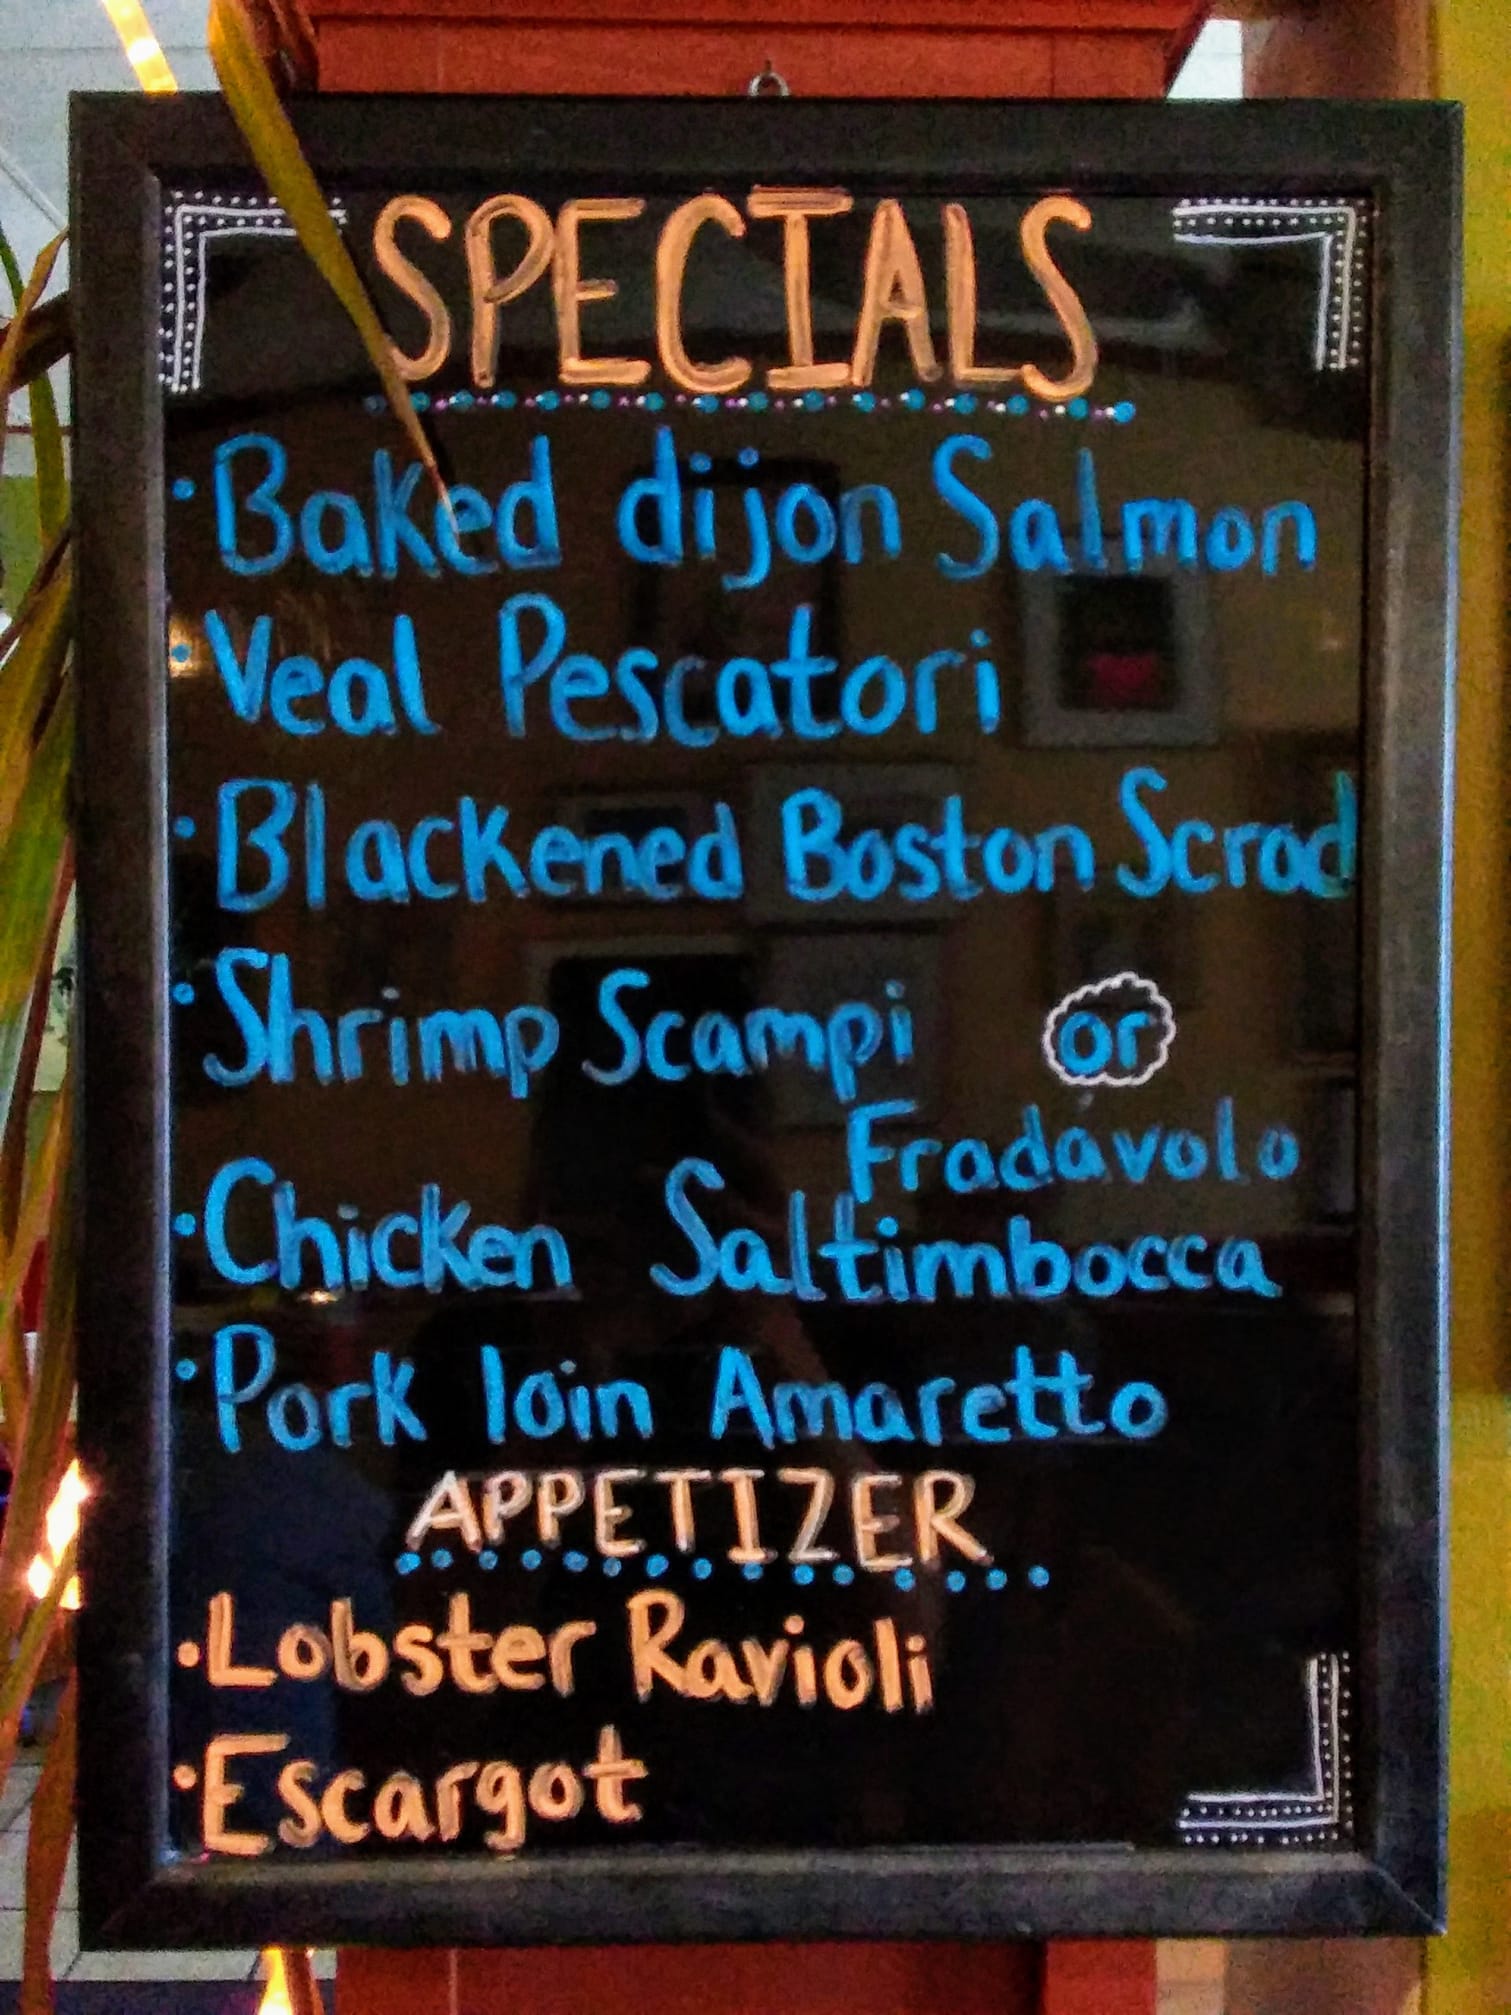 SPECIALS
• Baked dijon Salmon
• Veal Pescatori
• Blackened Boston Scrod
• Shrimp Scampi or
Fradavolo
• Chicken Saltimbocca
• Pork loin Amaretto
APPETIZER
• Lobster Ravioli
• Escargot